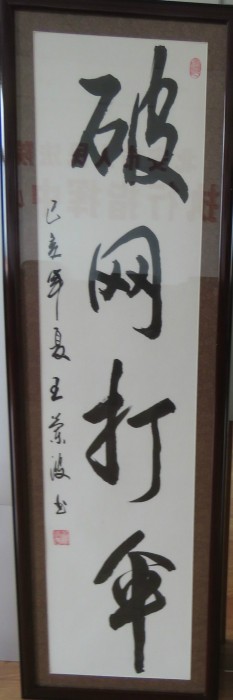 破网打伞
己亥年夏王兰波书